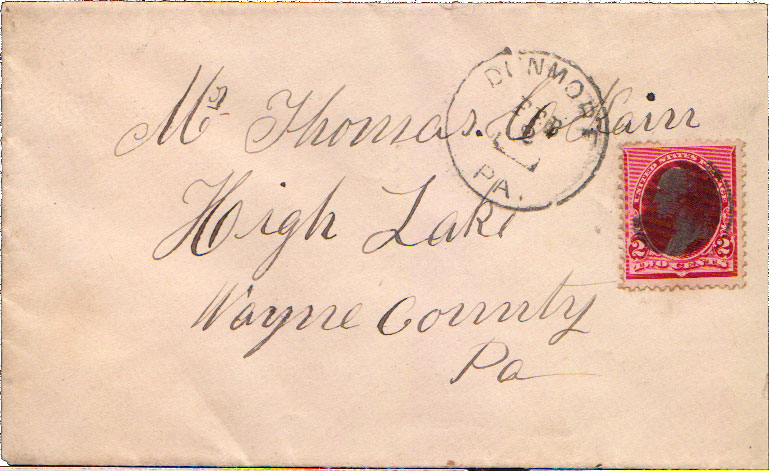 Mr Thomas O'Kain
High Lake
Wayne County
Pa
DUNMORE
FEB
PA.
UNITED STATES POSTAGE
2 2
TWO CENTS